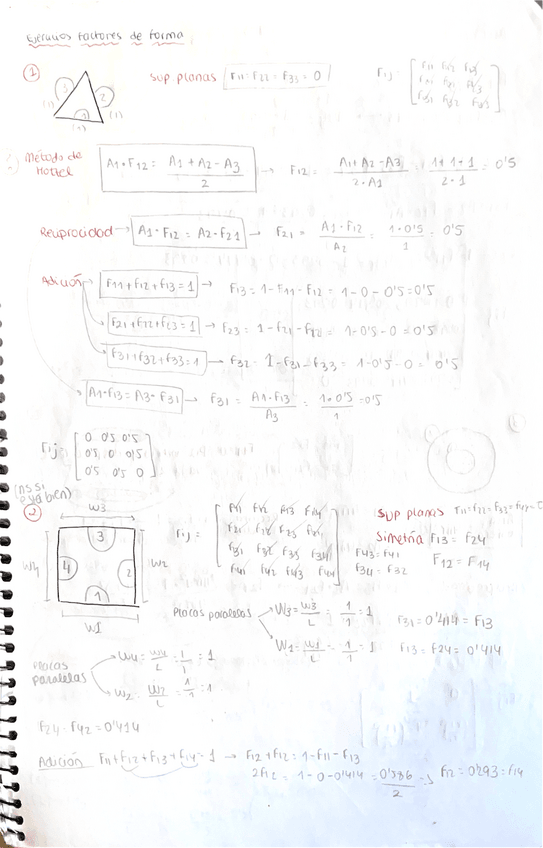 Ejercicios factores de forma
① 3 2 1 (1) (1) (1) Sup planas F11=F22=F33=0 Fij= [F11 F12 F13
F21 F22 F23
F31 F32 F33]
Método de Hottel A1·F12 = (A1+A2-A3)/2 → F12 = (A1+A2-A3)/(2·A1) = (1+1+1)/(2·1) = 0'5
Reciprocidad → A1·F12 = A2·F21 → F21 = (A1·F12)/A2 = (1·0'5)/1 = 0'5
Adición → F11+F12+F13=1 → F13=1-F11-F12=1-0-0'5=0'5
F21+F22+F23=1 → F23=1-F21-F22=1-0'5-0=0'5
F31+F32+F33=1 → F32=1-F31-F33=1-0'5-0=0'5
A1·F13=A3·F31 → F31=(A1·F13)/A3=(1·0'5)/1=0'5
Fij= [0 0'5 0'5
0'5 0 0'5
0'5 0'5 0]
(ns si
bien)
② W3 W4 W2 W1 3 4 2 1
Fij= [F11 F12 F13 F14
F21 F22 F23 F24
F31 F32 F33 F34
F41 F42 F43 F44]
Sup planas F11=F22=F33=F44=
Simetría F13=F24
F43=F41 F12=F14
F34=F32
Placas paralelas → W3=W3/L=1/1=1 F31=0'414=F13
W1=W1/L=1/1=1 F13=F24=0'414
Placas paralelas → W4=W4/L=1/1=1
W2=W2/L=1/1=1
F24=F42=0'414
Adición F11+F12+F13+F14=1 → F12+F12=1-F11-F13
2F12=1-0-0'414=0'586/2 → F12=0'293=F14